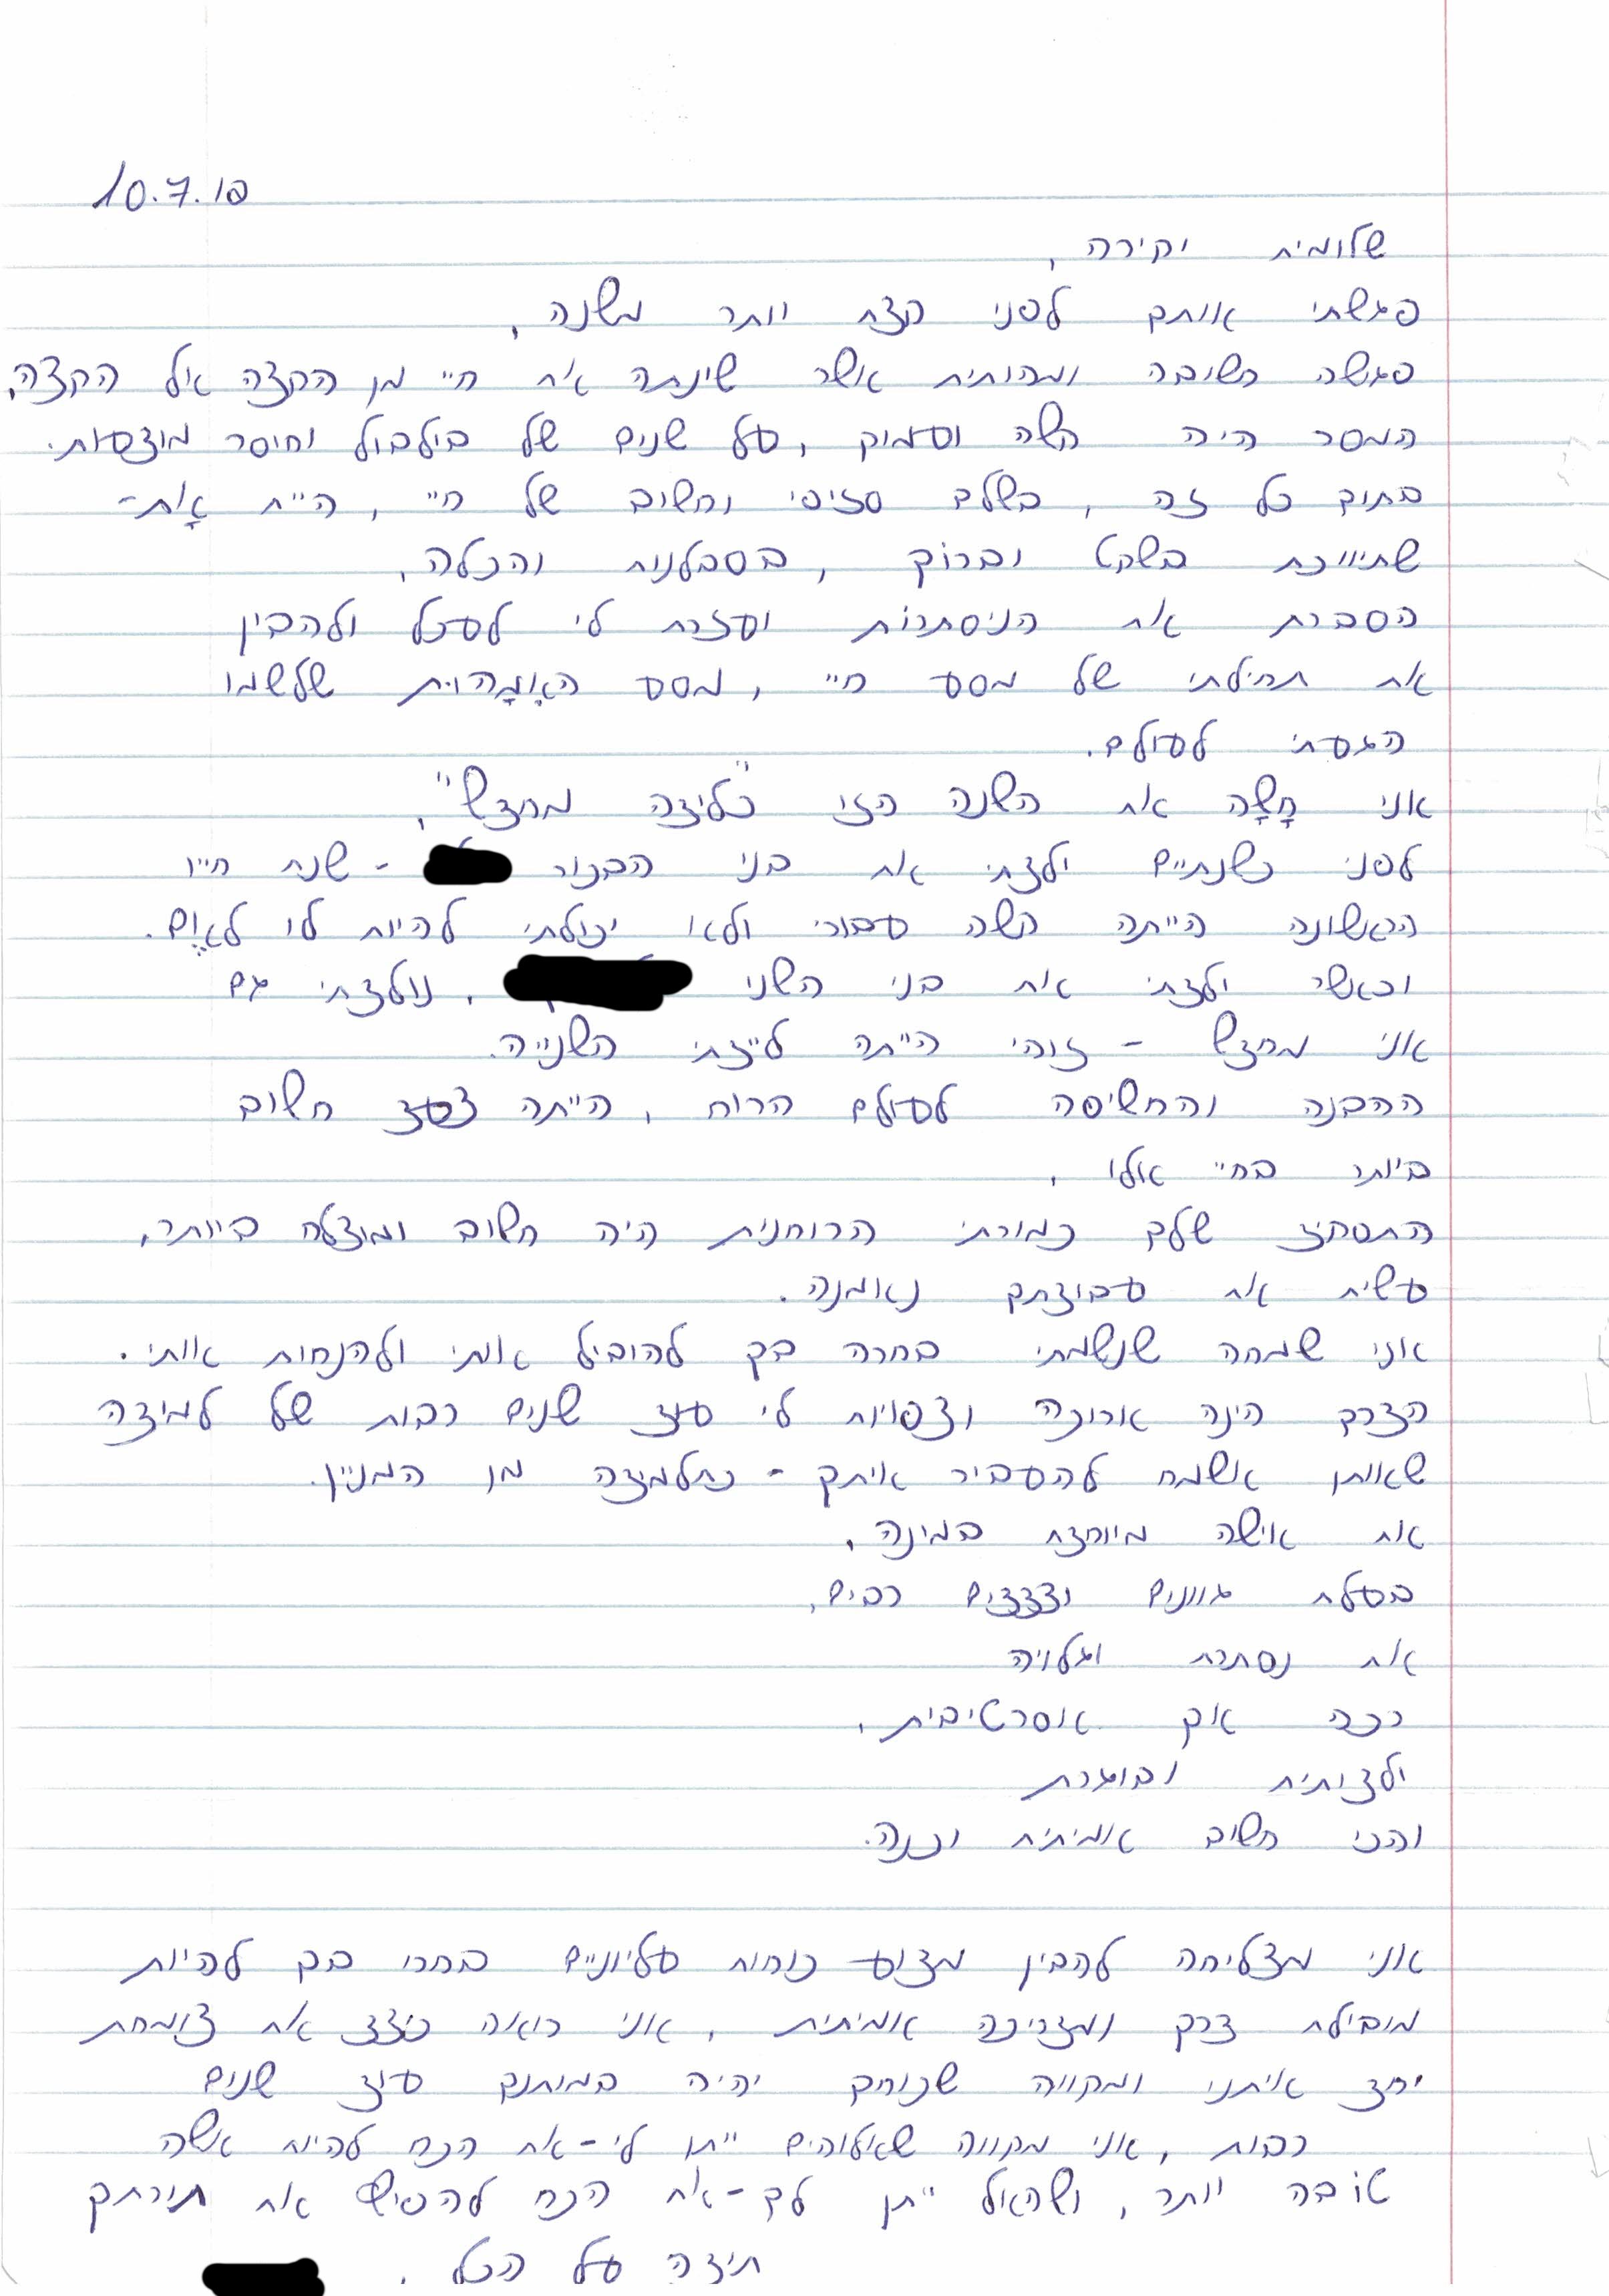 10.7.18
שלומית יקירה,
פגשתי אותך לפני קצת יותר משנה,
פגשה חשובה ומהותית אשר שינתה את חיי מן הקצה אל הקצה,
המסר היה קשה ועמוק, על שנים של בילבול וחוסר מודעות.
בתוך כל זה, בשלב סזיפי וחשוב של חיי, היית אָת-
שתיווכת בשקט וברוֹך, בסבלנות והכלה,
הסברת את הניסתרוֹת ועזרת לי לעכל ולהבין
את תחילתי של מסע חיי, מסע האִמָהוּת שלשמו
הגעתי לעולם.
אני חָשָה את השנה הזו "כלידה מחדש",
לפני כשנתיים ילדתי את בני הבכור - שנת חייו
הראשונה הייתה קשה עבורי ולא יכולתי להיות לו לאֵם.
וכאשר ילדתי את בני השני, נולדתי גם
אני מחדש - זוהי הייתה לידתי השנייה.
ההבנה והחשיפה לעולם הרוח, הייתה צעד חשוב
ביותר בחיי אלו,
התפקיד שלך כמורתי הרוחנית היה חשוב ומוצלח ביותר,
עשית את עבודתך נאמנה.
אני שמחה שנשמתי בחרה בך להוביל אותי ולהנחות אותי.
הדרך הינה ארוכה וצפויות לי עוד שנים רבות של למידה
שאותן אשמח להעביר איתך - כתלמידה מן המניין.
את אישה מיוחדת במינה,
בעלת גוונים וצדדים רבים,
את נסתרת וגלויה
רכה אך אסרטיבית,
ילדותית ובוגרת
והכי חשוב אמיתית וכנה.
אני מצליחה להבין מדוע כוחות עליוניים בחרו בך להיות
מובילת דרך ומדריכה אמיתית, אני רואה כיצד את צומחת
יחד איתנו ומקווה שכוחך יהיה במותנך עוד שנים
רבות, אני מקווה שאלוהים ייתן לי-את הכח להיות אשה
טוֹבה יותר, ושהאל ייתן לך-את הכח להפיץ את תורתך
תודה על הכל,